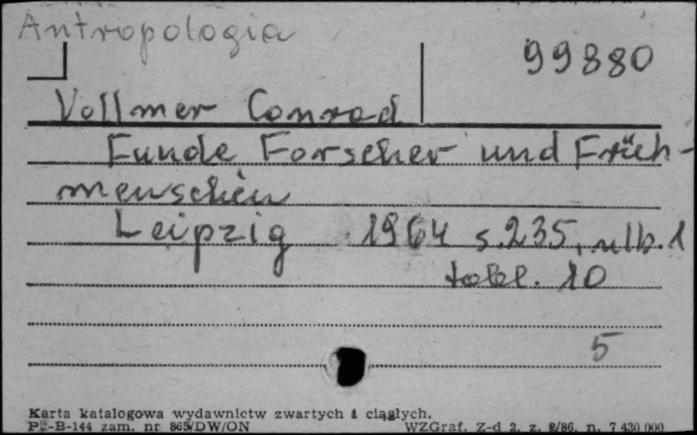 Antropologia
99880
Vollmer Conrad
Funde Forscher und Früh-
menschen
Leipzig 1964 s. 235, alb. 1
tabl. 10
5
Karta katalogowa wydawnictw zwartych i ciągłych.
Pu-B-144 zam. nr 865/DW/ON WZGraf. Z-d 2, z. 2/86, n. 7 430 000